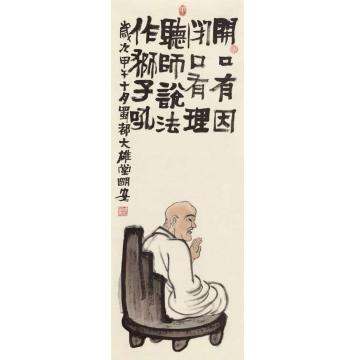 開口有因
閉口有理
聽師說法
作獅子吼
歲次甲午十月蜀都大雄堂朙宏